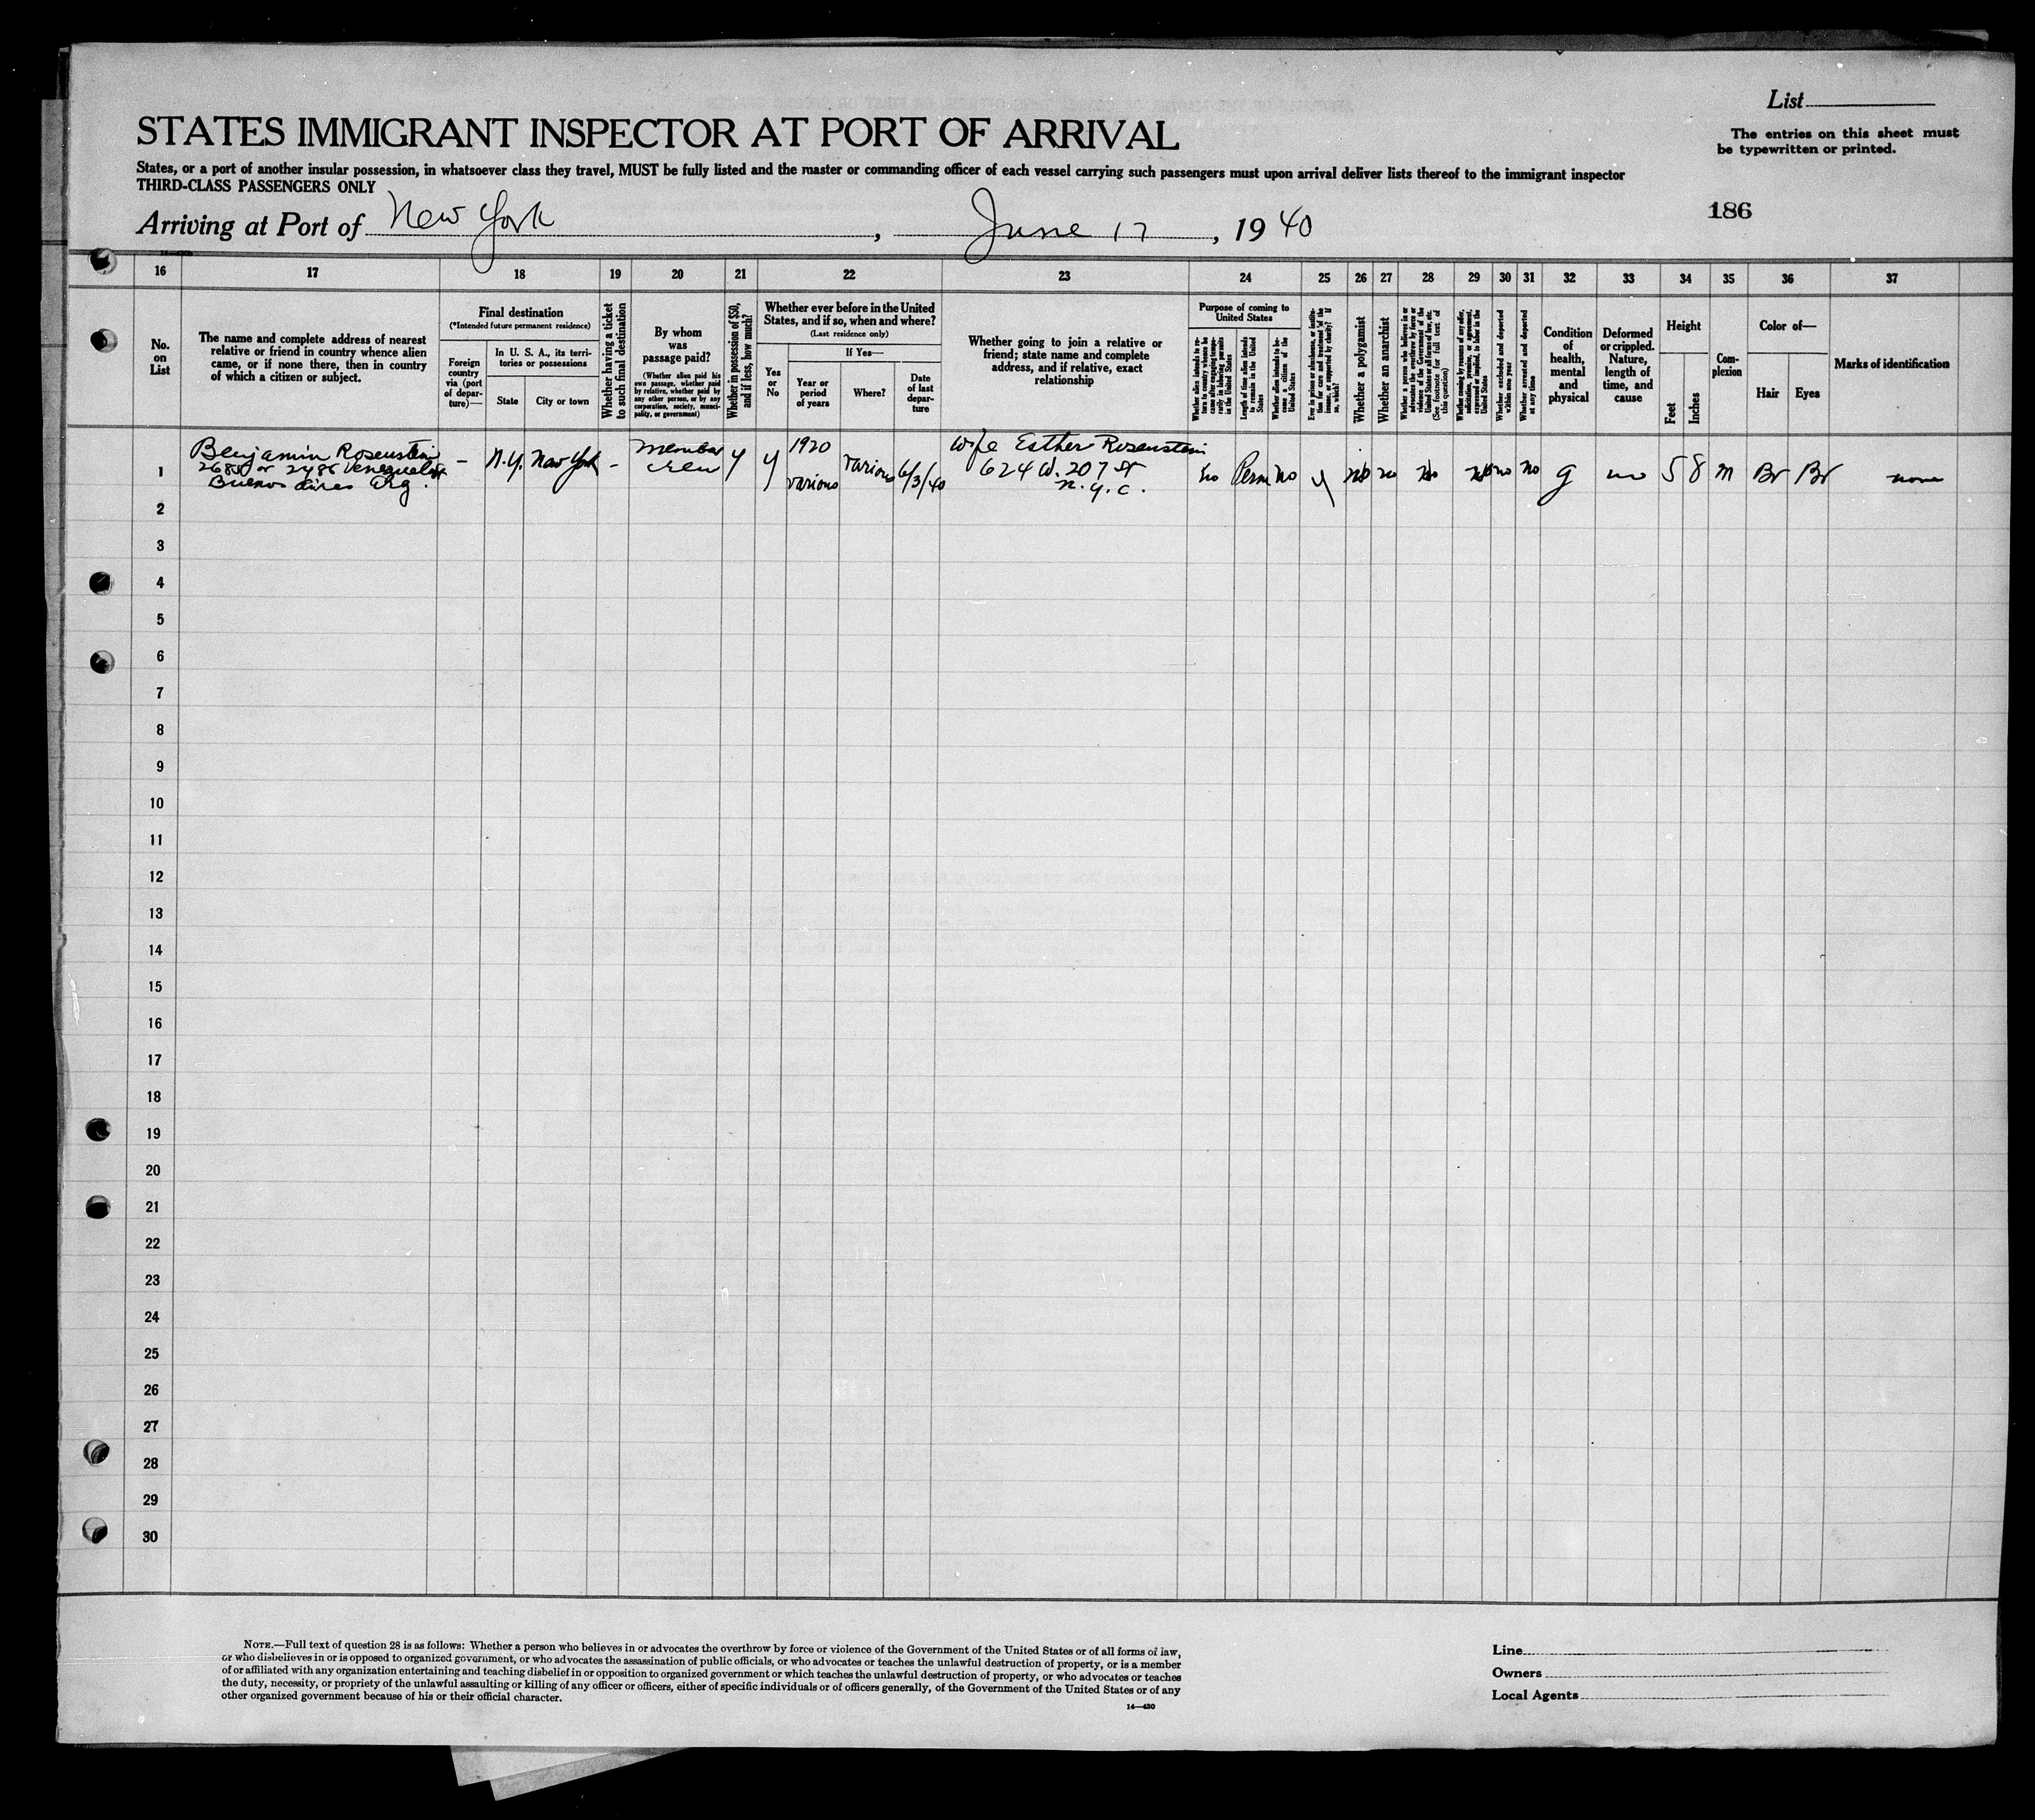 List
STATES IMMIGRANT INSPECTOR AT PORT OF ARRIVAL
The entries on this sheet must
be typewritten or printed.
States, or a port of another insular possession, in whatsoever class they travel, MUST be fully listed and the master or commanding officer of each vessel carrying such passengers must upon arrival deliver lists thereof to the immigrant inspector
THIRD-CLASS PASSENGERS ONLY
186
Arriving at Port of New York, June 17, 1940
16 17 18 19 20 21 22 23 24 25 26 27 28 29 30 31 32 33 34 35 36 37
No.
on
List
The name and complete address of nearest
relative or friend in country whence alien
came, or if none there, then in country
of which a citizen or subject.
Final destination
(*Intended future permanent residence)
Foreign
country
via (port
of depar-
ture)—
In U. S. A., its terri-
tories or possessions
State
City or town
Whether having a ticket
to such final destination
By whom
was
passage paid?
(Whether alien paid his
own passage, whether paid
by relative, whether paid by
any other person, or by any
corporation, society, munici-
pality, or government)
Whether in possession of $50,
and if less, how much?
Whether ever before in the United
States, and if so, when and where?
(Last residence only)
Yes
or
No
If Yes—
Year or
period
of years
Where?
Date
of last
depar-
ture
Whether going to join a relative or
friend; state name and complete
address, and if relative, exact
relationship
Purpose of coming to
United States
Whether alien intends to re-
turn to country whence he
came after engaging tempo-
rarily in laboring pursuits
in the United States
Length of time alien intends
to remain in the United
States
Whether alien intends to be-
come a citizen of the
United States
Ever in prison or almshouse, or institu-
tion for care and treatment of the
insane, or supported by charity? If
so, which?
Whether a polygamist
Whether an anarchist
Whether a person who believes in or
advocates the overthrow by force or
violence of the Government of the
United States or all forms of law, etc.
(See footnote for full text of
this question)
Whether coming by reasons of any offer,
solicitation, promise, or agreement,
expressed or implied, to labor in the
United States
Whether excluded and deported
within one year
Whether arrested and deported
at any time
Condition
of
health,
mental
and
physical
Deformed
or crippled.
Nature,
length of
time, and
cause
Height
Feet
Inches
Com-
plexion
Color of—
Hair
Eyes
Marks of identification
1
Benjamin Rosenstein
Buenos Aires Arg.
–
N.Y.
New York
–
member
crew
y
y
1920
various
various
6/3/40
wife Esther Rosenstein
624 W. 207 St
N.Y.C.
no
Perm
no
y
no
no
no
no
no
no
g
no
5
8
m
Br
Br
none
2
3
4
5
6
7
8
9
10
11
12
13
14
15
16
17
18
19
20
21
22
23
24
25
26
27
28
29
30
NOTE.—Full text of question 28 is as follows: Whether a person who believes in or advocates the overthrow by force or violence of the Government of the United States or of all forms of law,
or who disbelieves in or is opposed to organized government, or who advocates the assassination of public officials, or who advocates or teaches the unlawful destruction of property, or is a member
of or affiliated with any organization entertaining and teaching disbelief in or opposition to organized government or which teaches the unlawful destruction of property, or who advocates or teaches
the duty, necessity, or propriety of the unlawful assaulting or killing of any officer or officers, either of specific individuals or of officers generally, of the Government of the United States or of any
other organized government because of his or their official character.
14—430
Line
Owners
Local Agents